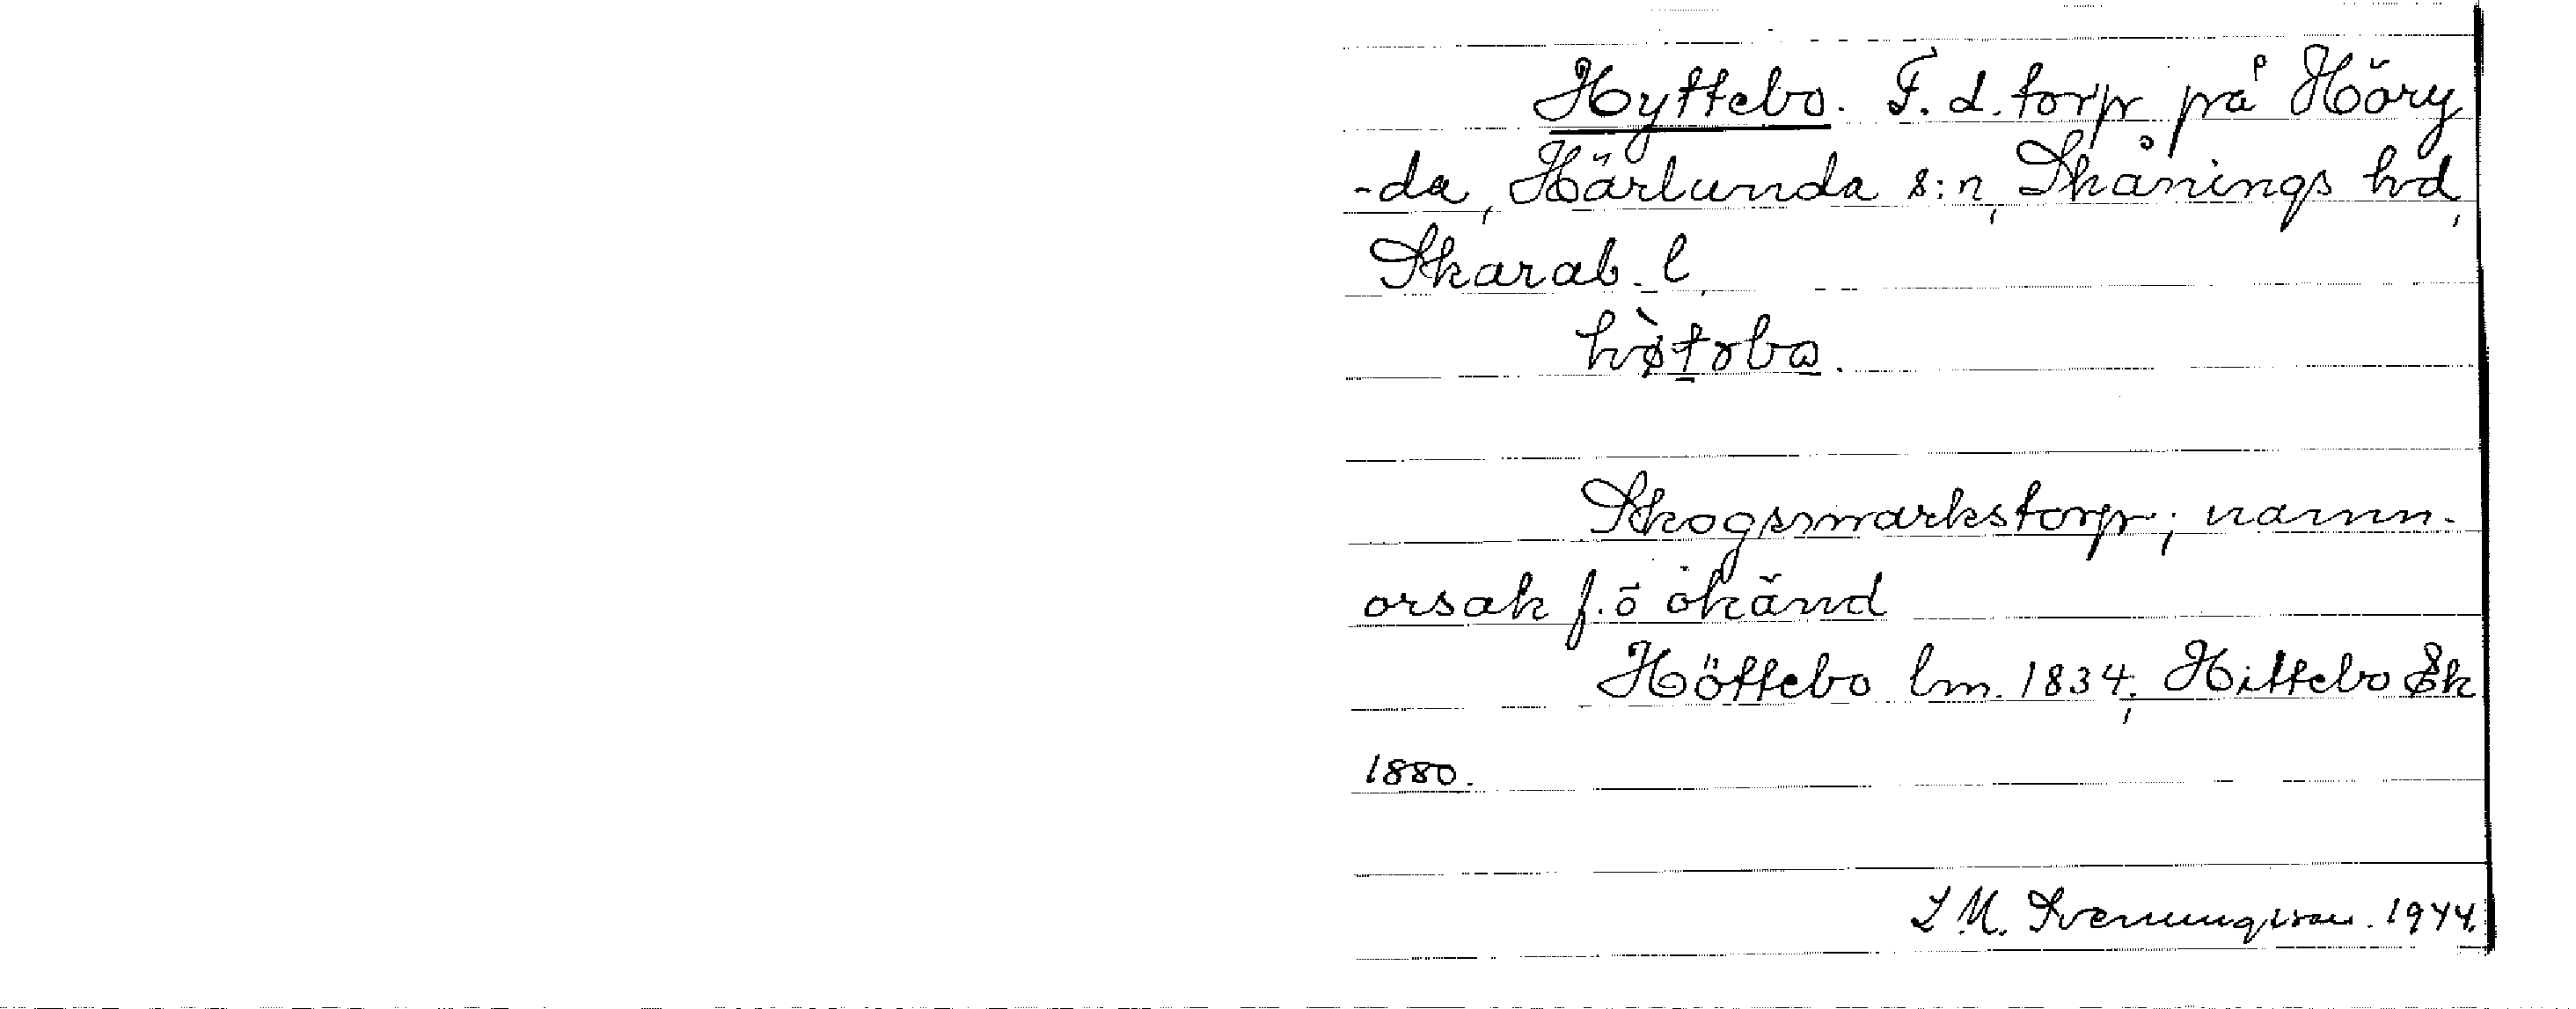 Hyttebo. F. d. torp på Höry
-da, Härlunda s:n, Skånings hd,
Skarab. l.
hø̀təbo.
Skogsmarkstorp; namn-
orsak f. ö okänd
Höttebo lm. 1834; Hittebo Ek
1880.
L M. Svenungsson. 1944.